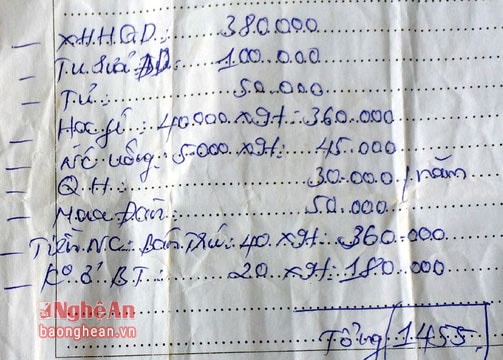 - XHHGD: 380.000
- Tu sửa BD: 100.000
- Tủ: 50.000
- Học fí: 40.000 x 9H: 360.000
- NC uống: 5.000 x 9H: 45.000
- Q.H: 30.000 / năm
- Mua Đàn: 50.000
- Tiền NC: Bán Trú: 40 x 9H: 360.000
- ở BT: 20 x 9H: 180.000
Tổng 1.455.
Nghệ An
baonghean.vn